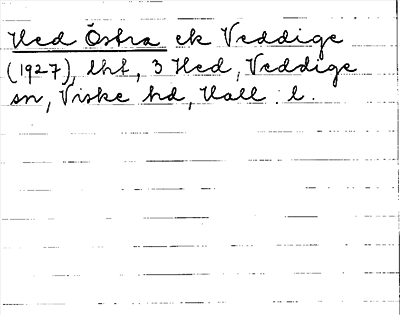 Hed Östra ek Veddige
(1927), lht, 3 Hed, Veddige
sn, Viske hd, Hall. l.